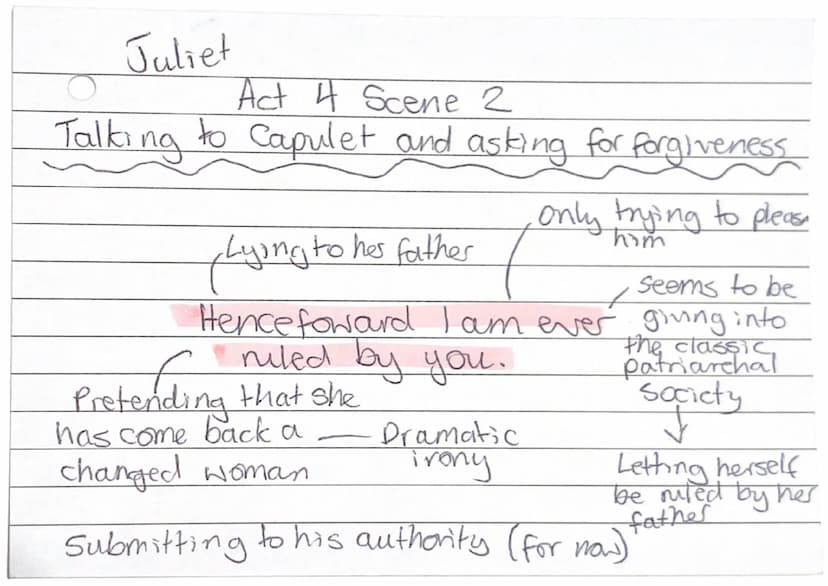 Juliet
Act 4 Scene 2
Talking to Capulet and asking for forgiveness
Only trying to please
him
Lying to her father
Henceforward I am ever
ruled by you.
seems to be
giving into
the classic
patriarchal
society
Pretending that she
has come back a
changed woman
Dramatic
irony
Letting herself
be ruled by her
father
Submitting to his authority (for now)